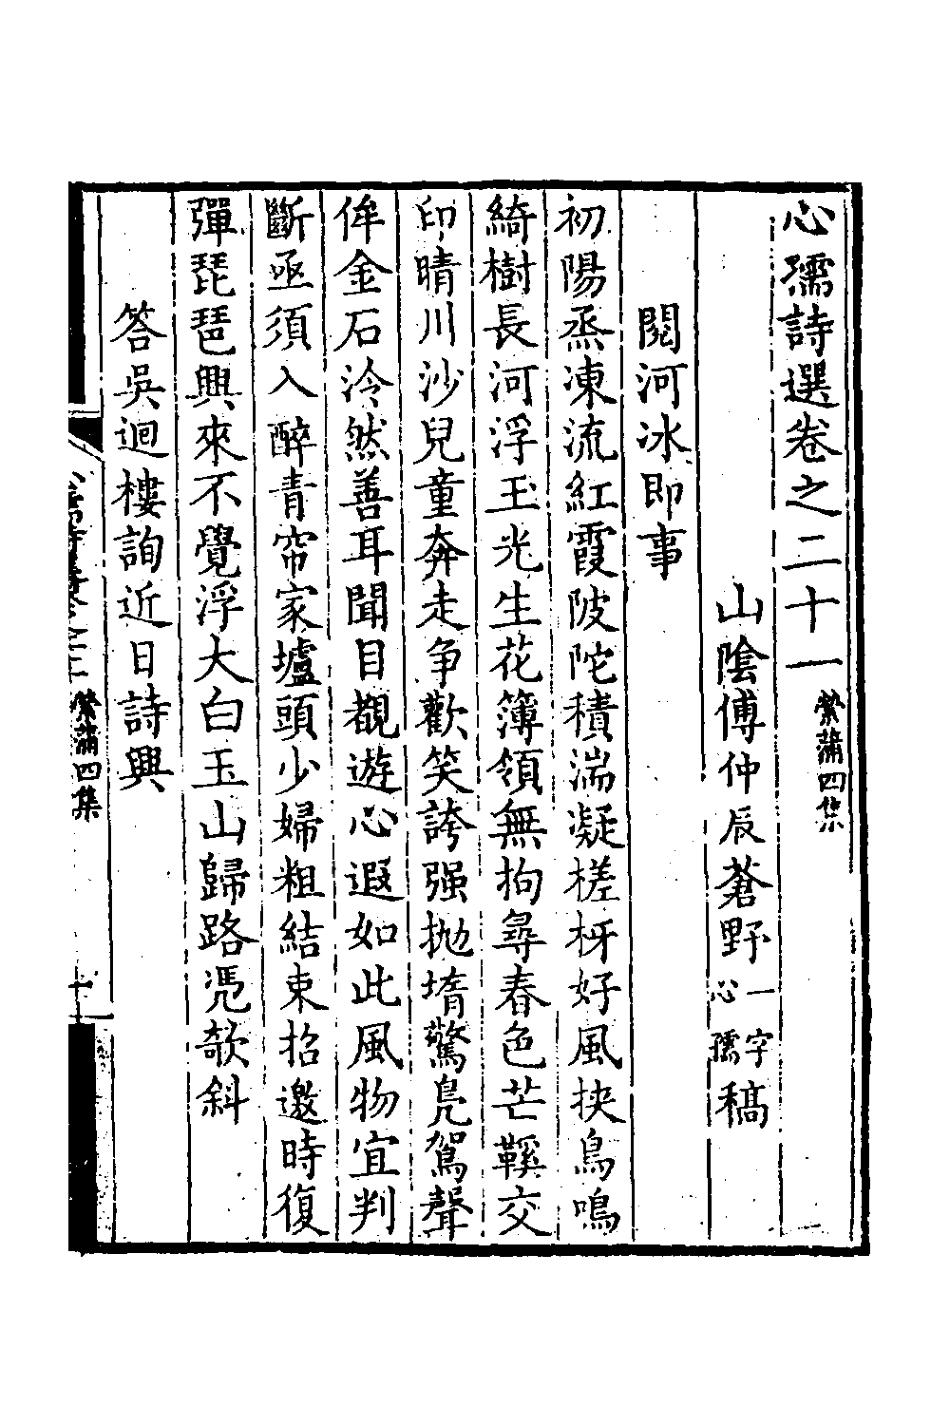 心孺詩選卷之二十一 縈蒲四集
山陰傅仲辰蒼野一字心孺稿
閱河冰即事
初陽烝凍流紅霞陂陀積湍凝槎枒好風抉鳥鳴
綺樹長河浮玉光生花簿領無拘尋春色芒鞵交
印晴川沙兒童奔走争歡笑誇强抛堶驚鳧鴐聲
侔金石泠然善耳聞目覩遊心遐如此風物宜判
斷亟須入醉青帘家壚頭少婦粗結束招邀時復
彈琵琶興來不覺浮大白玉山歸路凴欹斜
答吳迴樓詢近日詩興
縈蒲四集